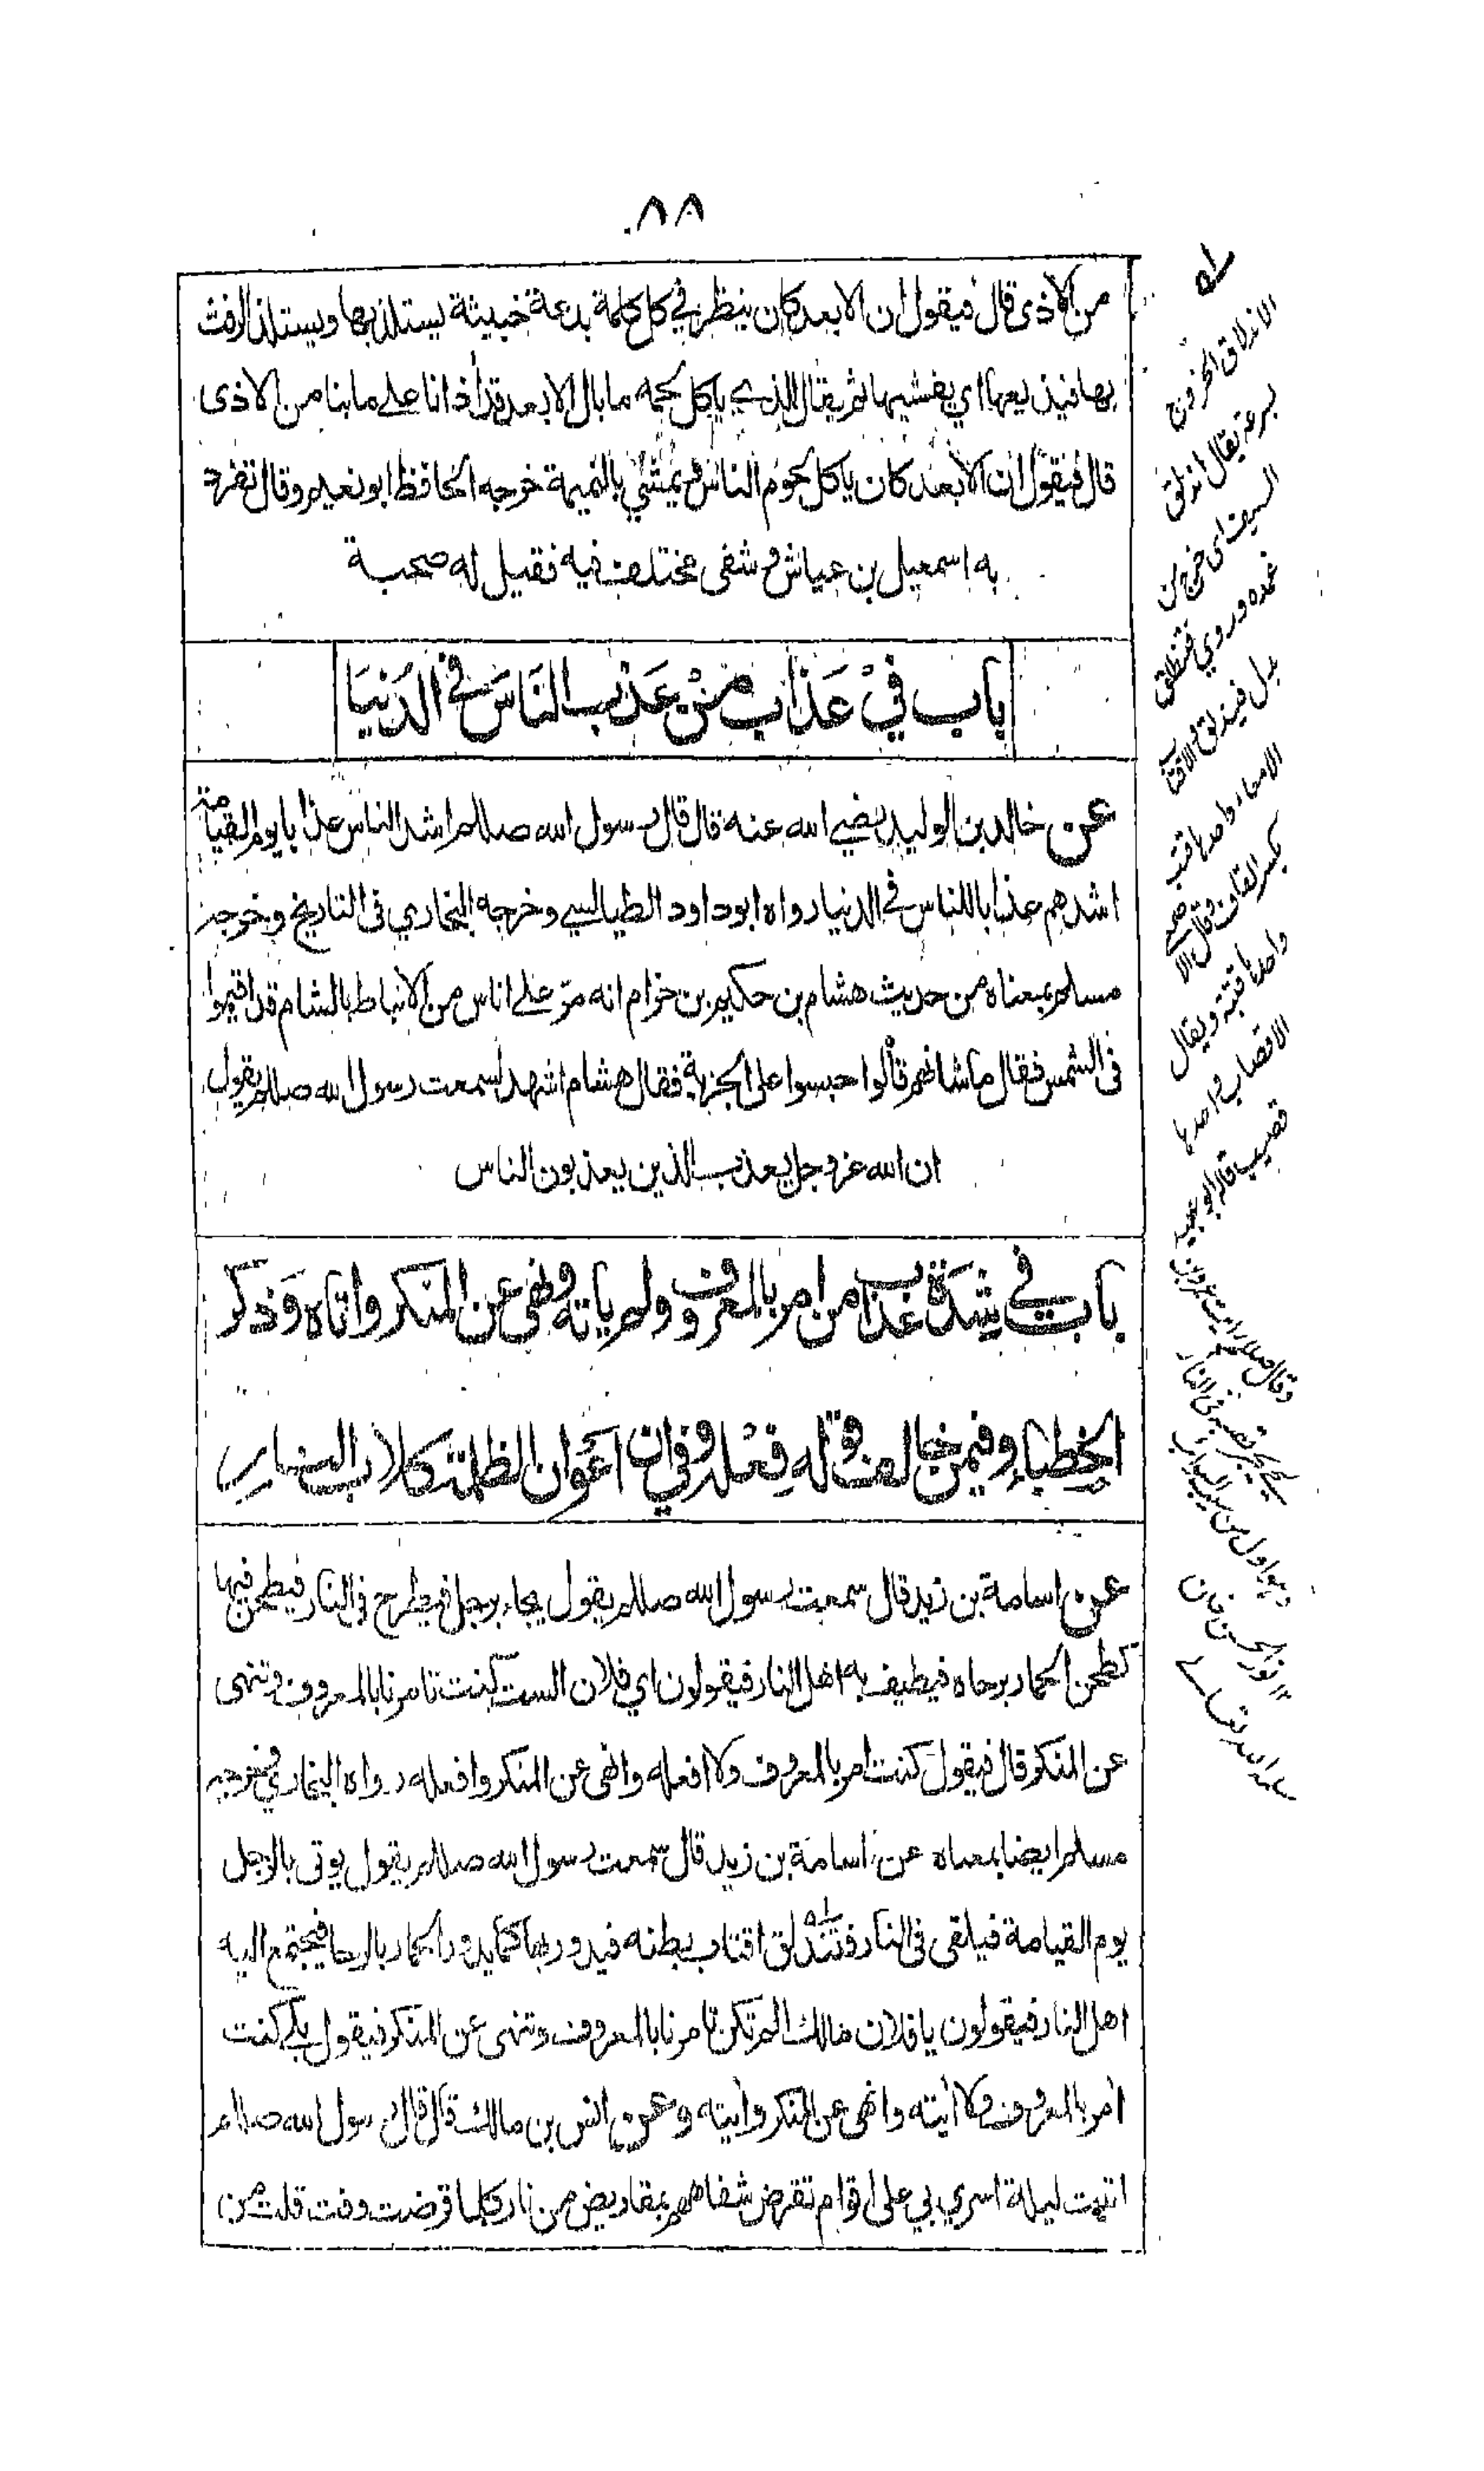 ٨٨
من الاذى قال فيقول ان الابعد كان ينظر في كل كلمة بدعة خبيثة يستلذ بها ويستلذ الرفث
بها فيذيعها اي يفشيها ثم يقال للذي ياكل لحمه ما بال الابعد قد اذانا على ما بنا من الاذى
قال فيقول ان الابعد كان ياكل لحوم الناس و يمشي بالنميمة خرجه الحافظ ابو نعيم وقال تفرد
به اسمعيل بن عياش و شفى مختلف فيه فقيل له صحبة
باب في عذاب من عذب الناس في الدنيا
عن خالد بن الوليد رضي الله عنه قال قال رسول الله صللم اشد الناس عذابا يوم القيامة
اشدهم عذابا للناس في الدنيا رواه ابو داود الطيالسي وخرجه البخاري فى التاريخ وخرجه
مسلم بمعناه من حديث هشام بن حكيم بن حزام انه مر على اناس من الانباط بالشام قد اقيموا
فى الشمس فقال ما شانهم قالوا حبسوا على الجزية فقال هشام اشهد لسمعت رسول الله صللم يقول
ان الله عز وجل يعذب الذين يعذبون الناس
باب في شدة عذاب من امر بالمعروف ولم ياته ونهى عن المنكر واتاه وذكر
الخطباء وفيمن خالف قوله فعله وفي ان اعوان الظلمة كلاب النار
عن اسامة بن زيد قال سمعت رسول الله صللم يقول يجاء برجل فيطرح فى النار فيطحن فيها
كطحن الحمار برحاه فيطيف به اهل النار فيقولون اي فلان الست كنت تامرنا بالمعروف وتنهى
عن المنكر قال فيقول كنت امر بالمعروف ولا افعله وانهى عن المنكر وافعله رواه البخاري وخرجه
مسلم ايضا بمعناه عن اسامة بن زيد قال سمعت رسول الله صللم يقول يوتى بالرجل
يوم القيامة فيلقى فى النار فتندلق اقتاب بطنه فيدور بها كما يدور الحمار بالرحا فيجتمع اليه
اهل النار فيقولون يا فلان مالك الم تكن تامرنا بالمعروف وتنهى عن المنكر فيقول بلى كنت
امر بالمعروف ولا اتيته وانهى عن المنكر واتيته وعن انس بن مالك قال قال رسول الله صللم
اتيت ليلة اسري بي على اقوام تقرض شفاههم بمقاريض من نار كلما قرضت وفت قلت من
الاندلاق الخروج
بسرعة يقال اندلق
السيف اى خرج من
غمده وروي فتنطلق
بدل فيندلق والاقتاب
الامعاء واحدها قتب
بكسر القاف وقال الاصمعي
واحدها قتبة ويقال
الاقصاب واحدها
قصب قاله ابو عبيد
وقال صللم رايت عمرو بن
لحي يجر قصبه فى النار
وهو اول من سيب السوائب